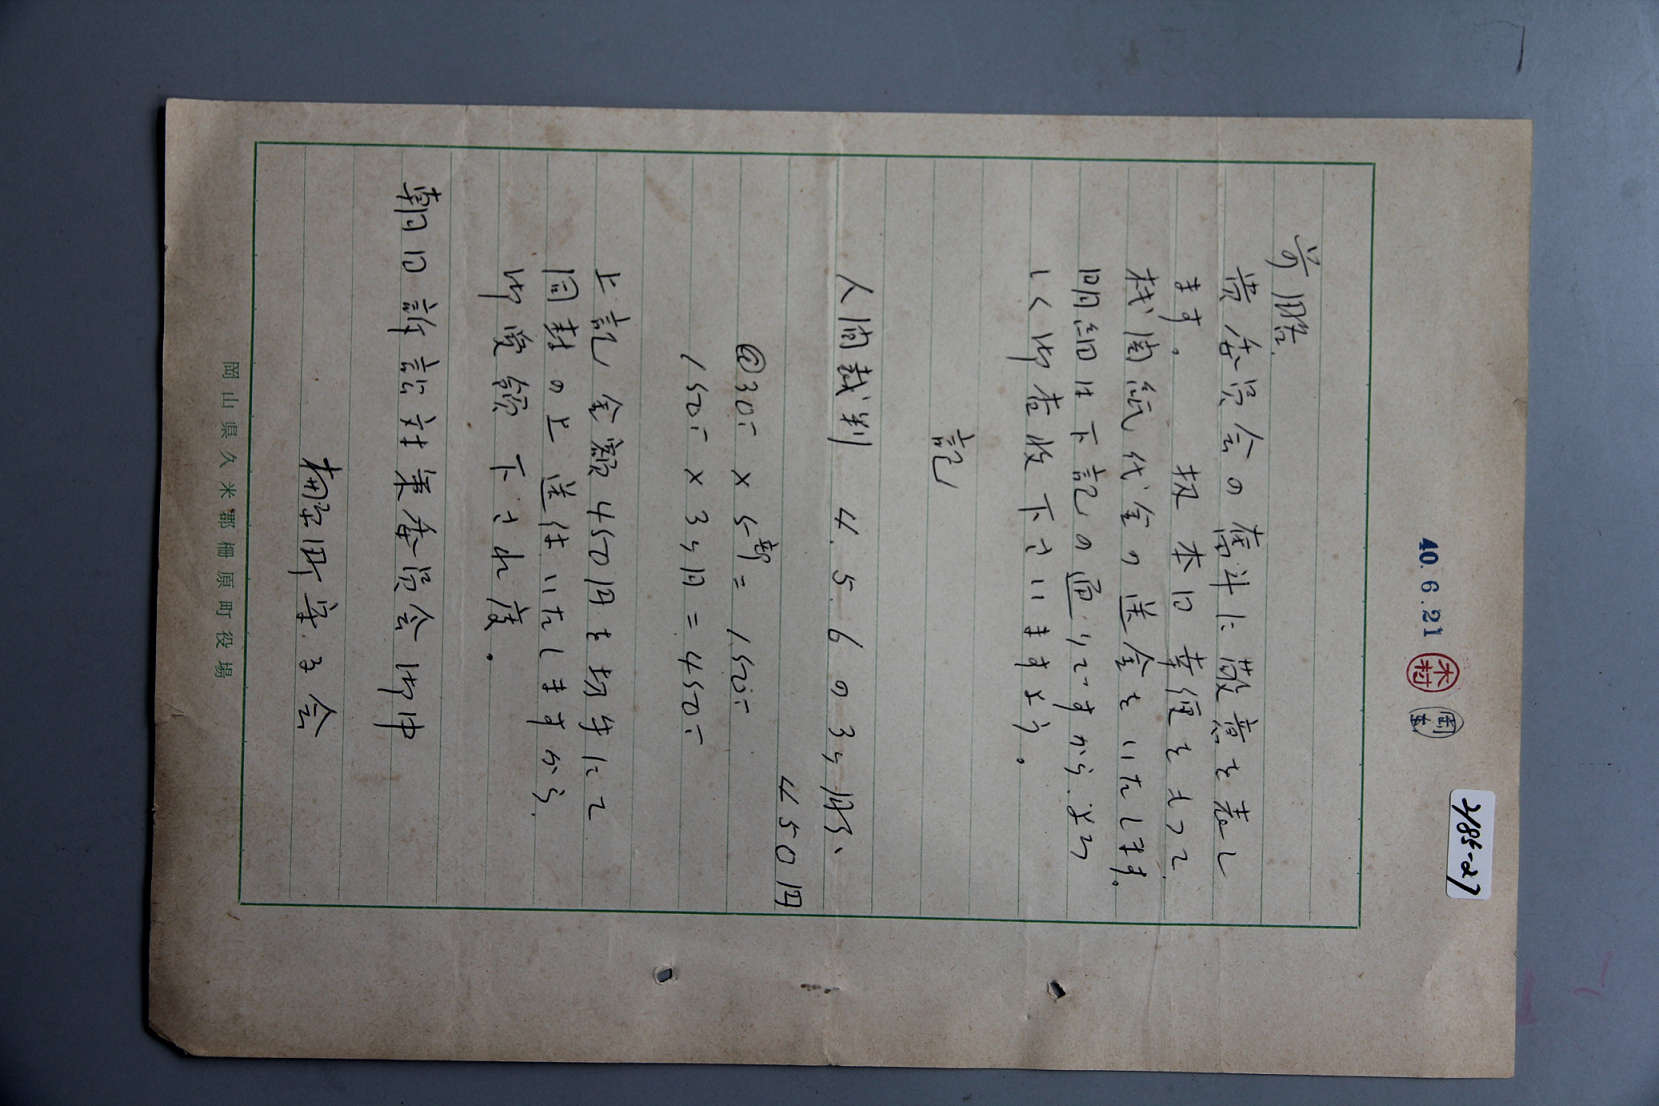 2185-27
40.6.21
木村
前略.
貴委員会の奮斗に敬意を表し
ます。扨本日幸便をもって
機関紙代金の送金をいたします。
明細は下記の通りですから、よろ
しく御査収下さいますよう。
記
人間裁判 4.5.6の3ヶ月分、
450円
@30.- × 5部 = 150.-
150.- × 3ヶ月 = 450.-
上記金額450円を切手にて
同封の上送付いたしますから、
御受領下され度。
朝日訴訟対策委員会御中
柵原町守る会
岡山県久米郡柵原町役場